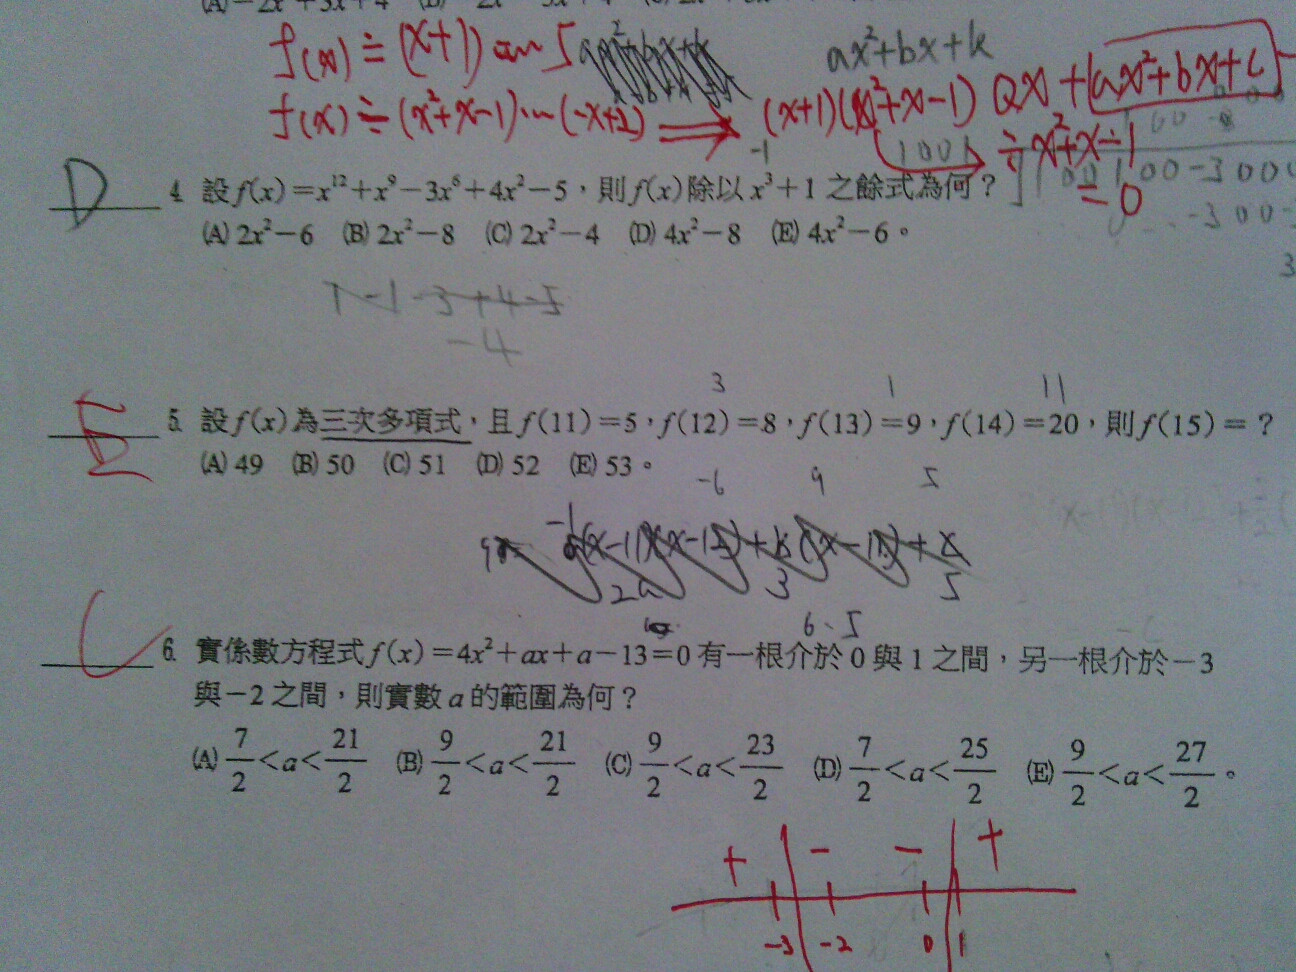 f(x) ÷ (x+1) … 5
ax²+bx+k
f(x) ÷ (x²+x-1) … (-x+2) ⟹ (x+1)(x²+x-1) Qx + (ax²+bx+c)
÷ x²+x-1
= 0
-1
1001
D 4. 設 f(x)=x¹²+x⁹-3x⁶+4x²-5，則 f(x) 除以 x³+1 之餘式為何？
(A) 2x²-6 (B) 2x²-8 (C) 2x²-4 (D) 4x²-8 (E) 4x²-6。
1-1-3+4-5
-4
3 1 11
E 5. 設 f(x) 為三次多項式，且 f(11)=5，f(12)=8，f(13)=9，f(14)=20，則 f(15)=？
(A) 49 (B) 50 (C) 51 (D) 52 (E) 53。
-6 9 5
2a 3 5
6、5
C 6. 實係數方程式 f(x)=4x²+ax+a-13=0 有一根介於 0 與 1 之間，另一根介於 -3
與 -2 之間，則實數 a 的範圍為何？
(A) 7/2<a<21/2 (B) 9/2<a<21/2 (C) 9/2<a<23/2 (D) 7/2<a<25/2 (E) 9/2<a<27/2。
+ - - +
-3 -2 0 1